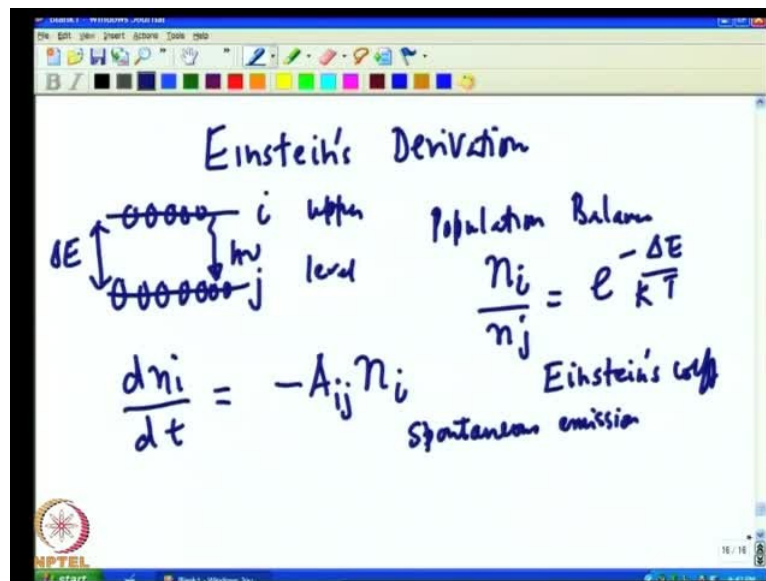 Blank1 - Windows Journal
File Edit View Insert Actions Tools Help
B I
Einstein's Derivation
i upper
Population Balance
ΔE
hν
j level
n_i / n_j = e^{-ΔE / kT}
dn_i / dt = -A_{ij} n_i
Einstein's coeff
Spontaneous emission
NPTEL
16 / 16
start